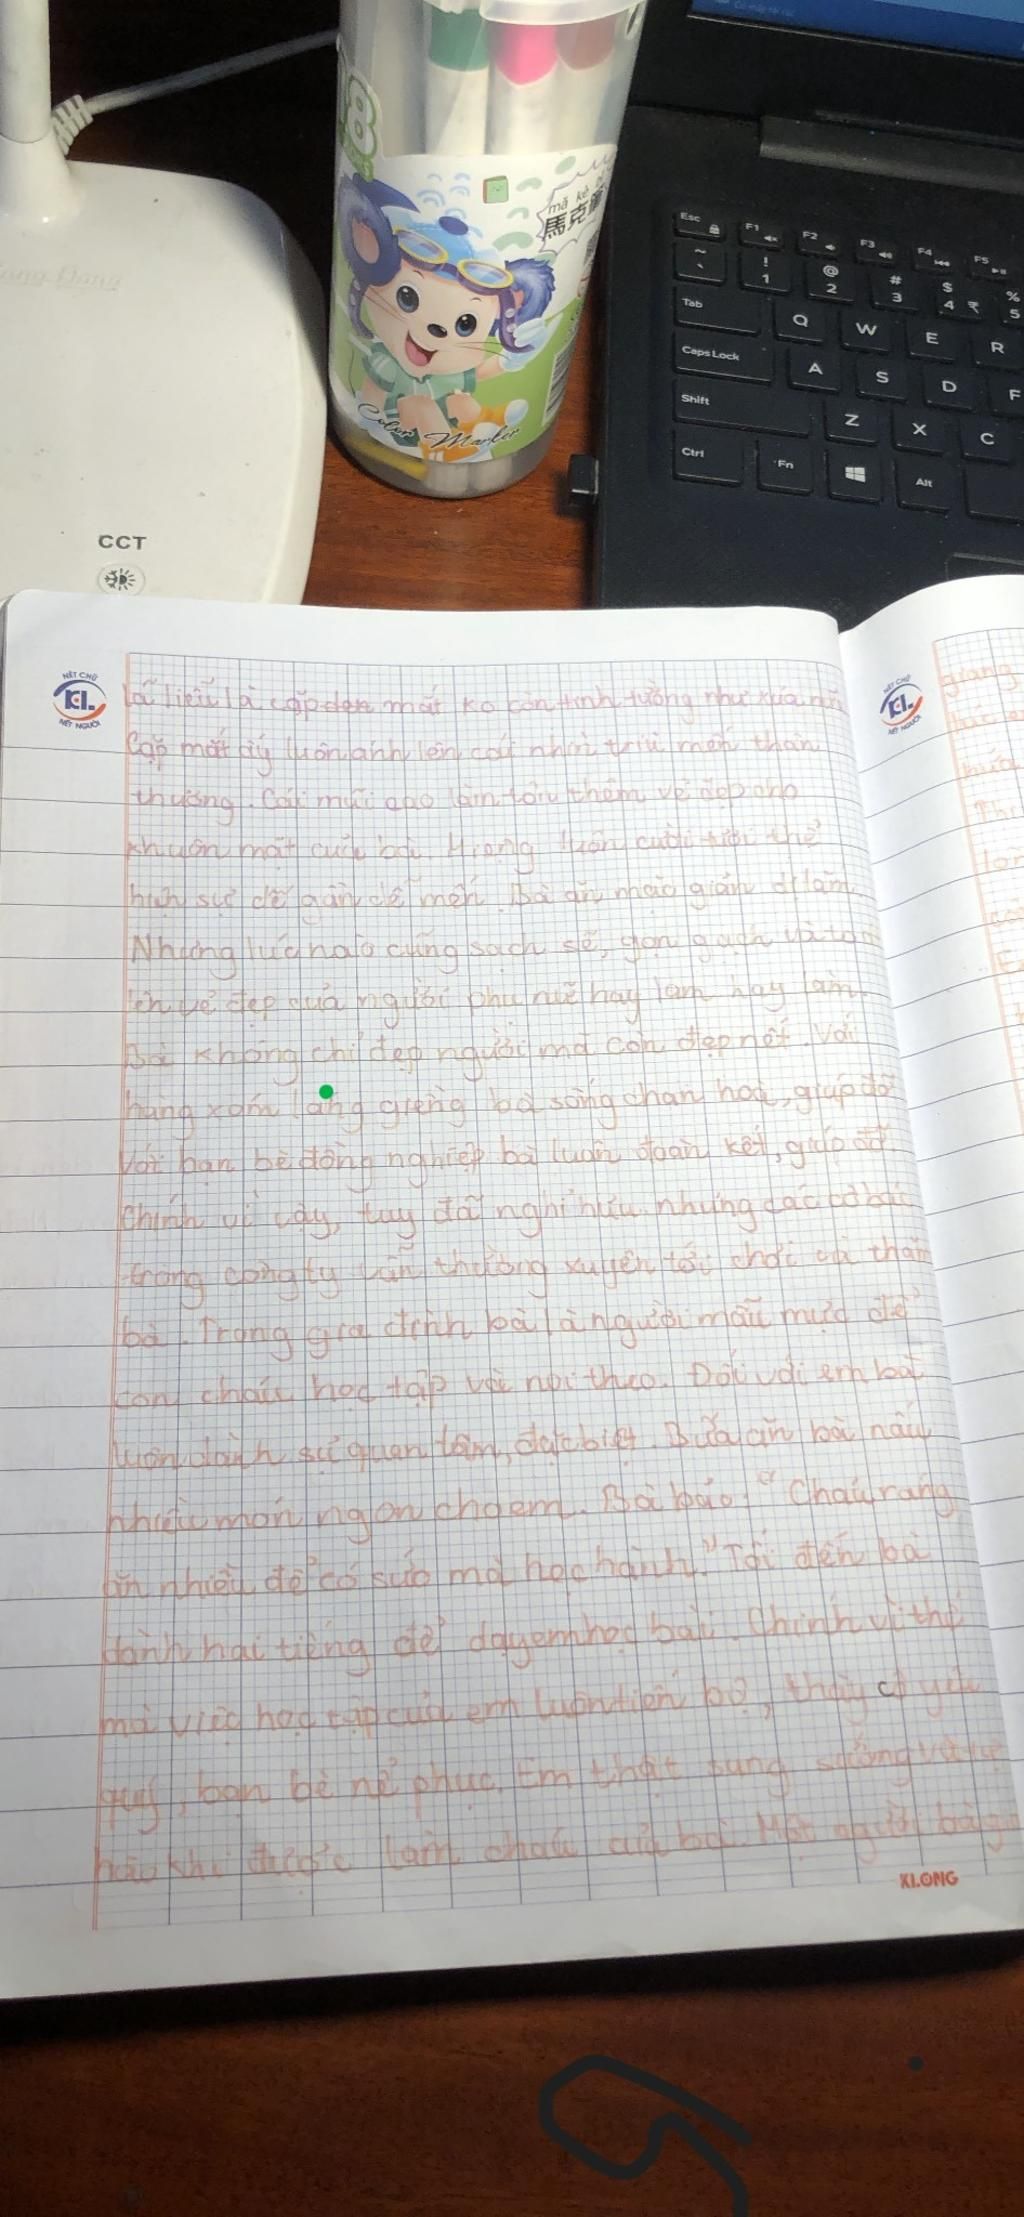 18
mǎ kè
馬克
Color Marker
CCT
Esc
F1
F2
F3
F4
F5
~
`
!
1
@
2
#
3
$
4
₹
%
5
Tab
Q
W
E
R
Caps Lock
A
S
D
F
Shift
Z
X
C
Ctrl
Fn
Alt
NÉT CHỮ
KL
NẾT NGƯỜI
NÉT CHỮ
KL
NẾT NGƯỜI
lá liễu là cặp đen mắt ko còn tinh tường như xưa nữa
Cặp mắt ấy luôn ánh lên cái nhìn trìu mến thân
thương. Cái mũi cao làm tôn thêm vẻ đẹp cho
khuôn mặt của bà. Miệng luôn cười tươi thể
hiện sự dễ gần dễ mến. Bà ăn mặc giản dị lắm
Nhưng lúc nào cũng sạch sẽ, gọn gàng và tô
lên vẻ đẹp của người phụ nữ hay lam hay làm.
Bà không chỉ đẹp người mà còn đẹp nết. Với
hàng xóm láng giềng bà sống chan hoà, giúp đỡ
Với bạn bè đồng nghiệp bà luôn đoàn kết, giúp đỡ.
Chính vì vậy, tuy đã nghỉ hưu nhưng các cô bác
trong công ty vẫn thường xuyên tới chơi và thăm
bà. Trong gia đình bà là người mẫu mực để
con cháu học tập và noi theo. Đối với em bà
luôn dành sự quan tâm, đặc biệt. Bữa ăn bà nấu
nhiều món ngon cho em. Bà bảo: "Cháu ráng
ăn nhiều để có sức mà học hành." Tối đến bà
dành hai tiếng để dạy em học bài. Chính vì thế
mà việc học tập của em luôn tiến bộ, thầy cô yêu
quý, bạn bè nể phục. Em thật sung sướng và tự
hào khi được làm cháu của bà. Một người bà
KLONG
giang